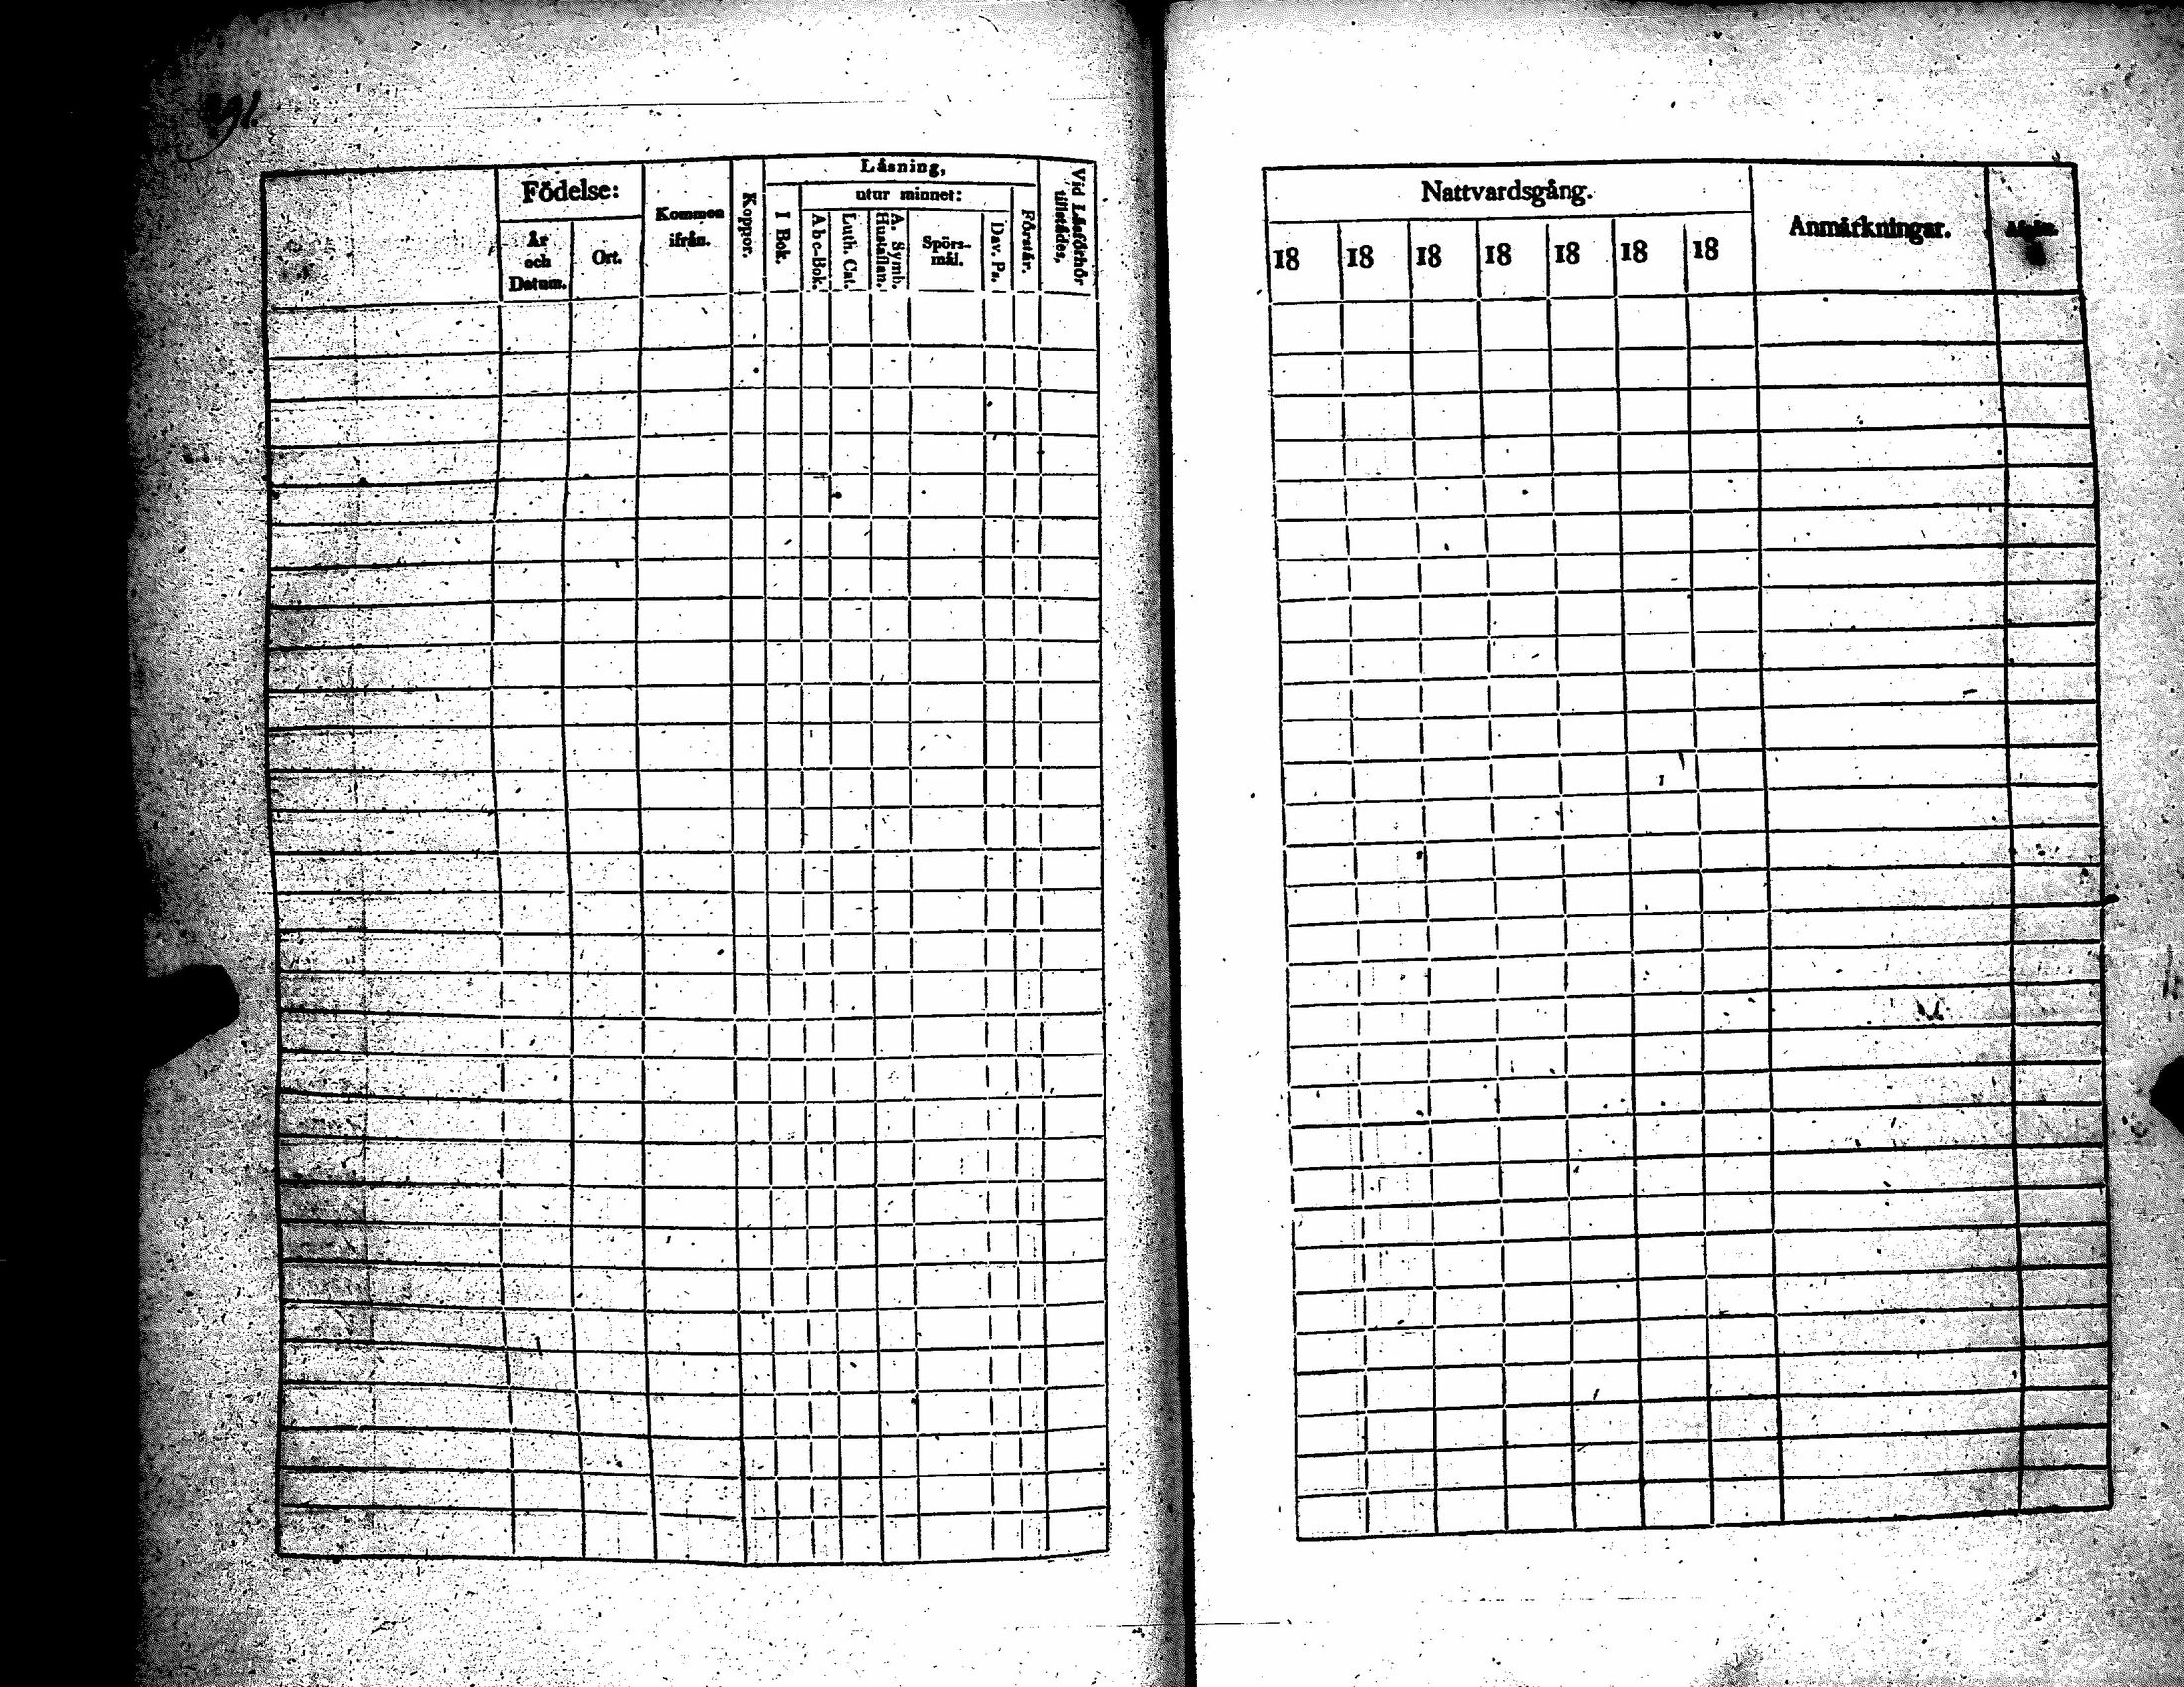 291.
Födelse:
År
och
Datum.
Ort.
Kommen
ifrån.
Koppor.
Låsning,
I Bok.
utur minnet:
Abc-Bok.
Luth. Cat.
A. Symb.
Hustaflan.
Spörs-
mål.
Dav. Ps.
Förstår.
Vid Låsförhör
tillstädes,
Nattvardsgång.
18 18 18 18 18 18 18
Anmärkningar.